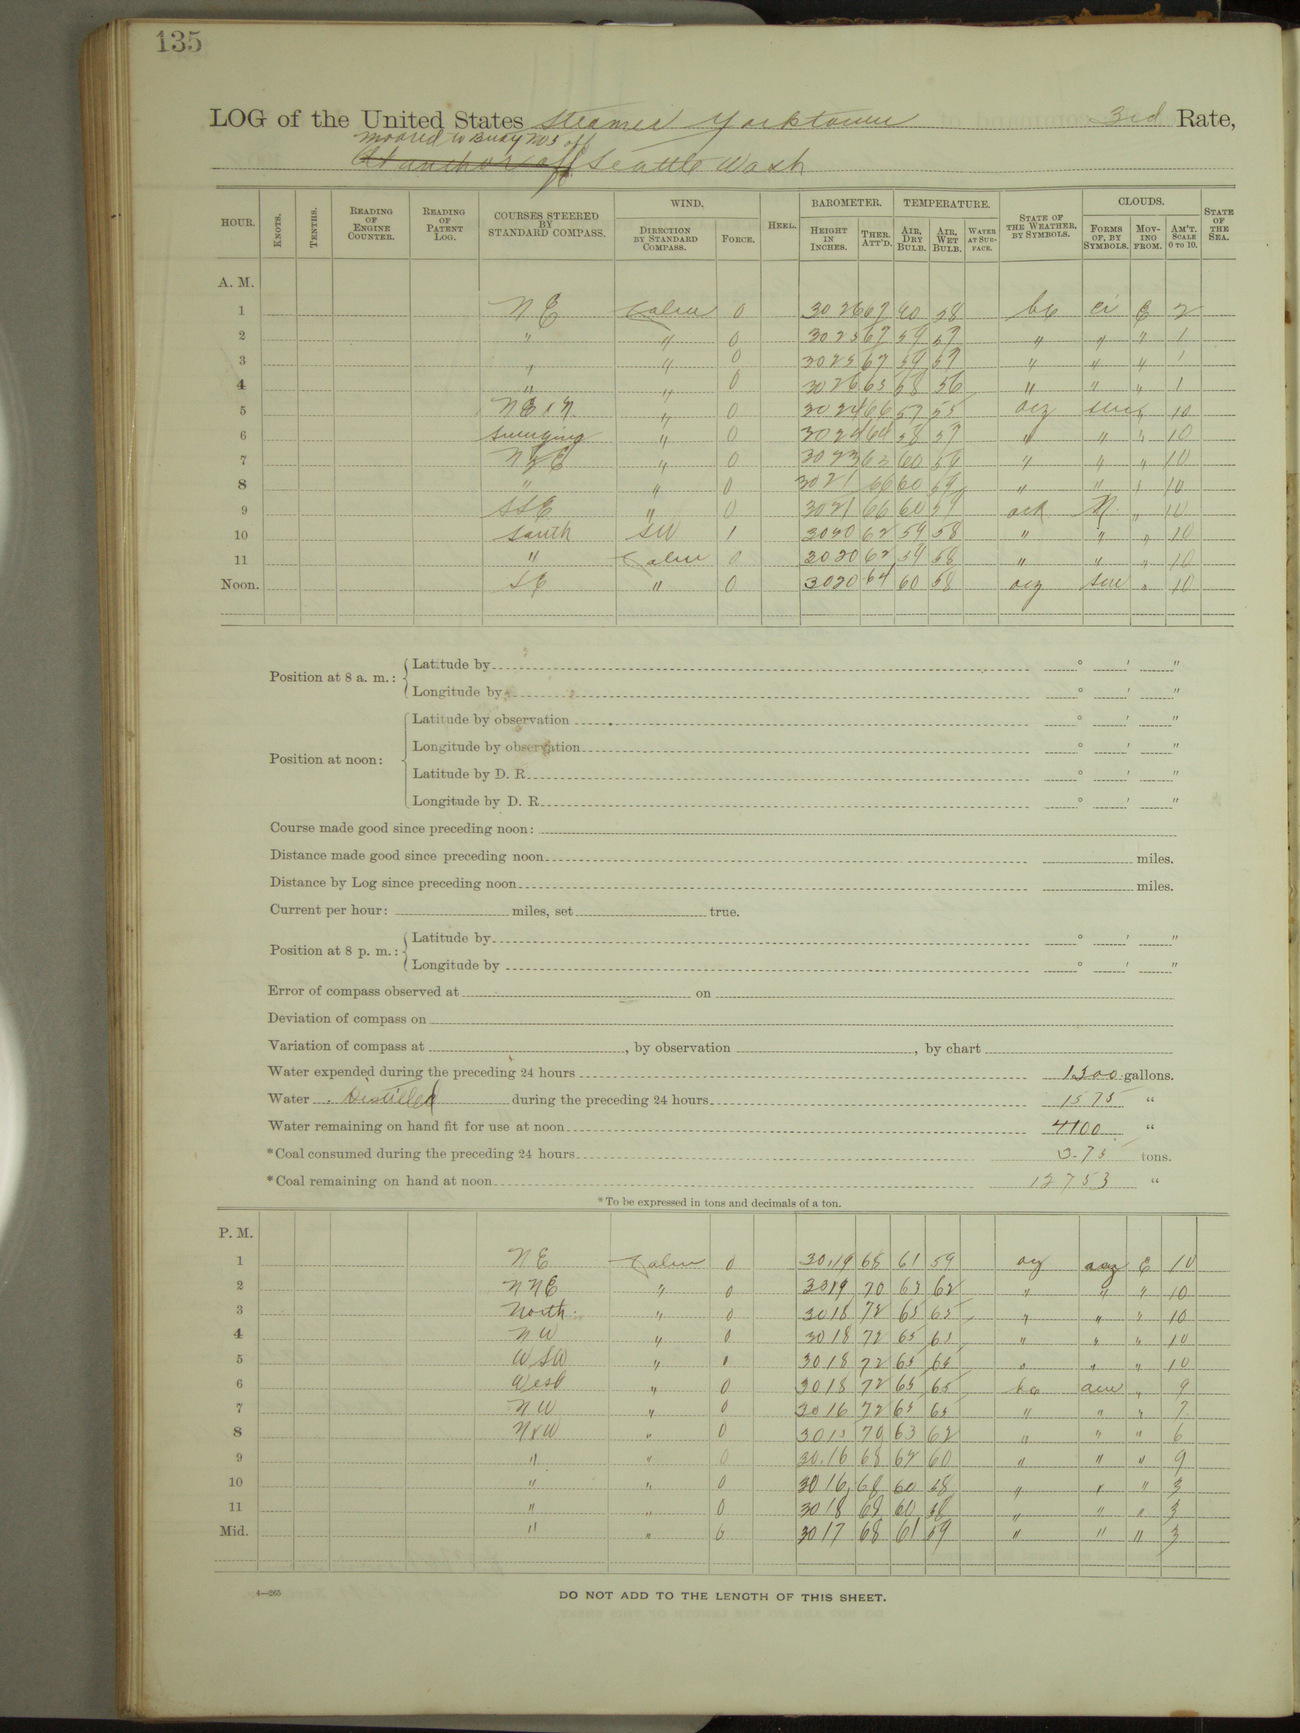 135
LOG of the United States Steamer Yorktown 3rd Rate,
Moored to Buoy No 3 off
At anchor off Seattle Wash
HOUR. KNOTS. TENTHS. READING OF ENGINE COUNTER. READING OF PATENT LOG. COURSES STEERED BY STANDARD COMPASS. WIND. DIRECTION BY STANDARD COMPASS. FORCE. HEEL. BAROMETER. HEIGHT IN INCHES. THER. ATT'D. TEMPERATURE. AIR, DRY BULB. AIR, WET BULB. WATER AT SURFACE. STATE OF THE WEATHER, BY SYMBOLS. CLOUDS. FORMS OF, BY SYMBOLS. MOVING FROM. AM'T. SCALE 0 TO 10. STATE OF THE SEA.
A. M.
1 NE Calm 0 30 26 67 60 58 bc ci E 2
2 " " 0 30 25 67 59 57 " " " 1
3 " " 0 30 25 67 59 57 " " " 1
4 " " 0 30 26 65 58 56 " " " 1
5 NE x N " 0 30 24 66 57 55 ocz 10
6 Swinging " 0 30 24 64 58 57 " " " 10
7 NNE " 0 30 23 63 60 59 " " " 10
8 " " 0 30 21 66 60 59 " " " 10
9 SSE " 0 30 21 66 60 57 N " 10
10 South SW 1 30 20 62 59 58 " " " 10
11 " Calm 0 30 20 62 59 58 " " " 10
Noon. SE " 0 30 20 64 60 58 ocz " 10
Position at 8 a. m.: Latitude by ° ' "
Longitude by ° ' "
Position at noon: Latitude by observation ° ' "
Longitude by observation ° ' "
Latitude by D. R. ° ' "
Longitude by D. R. ° ' "
Course made good since preceding noon:
Distance made good since preceding noon miles.
Distance by Log since preceding noon miles.
Current per hour: miles, set true.
Position at 8 p. m.: Latitude by ° ' "
Longitude by ° ' "
Error of compass observed at on
Deviation of compass on
Variation of compass at , by observation , by chart
Water expended during the preceding 24 hours 1300 gallons.
Water Distilled during the preceding 24 hours 1575 "
Water remaining on hand fit for use at noon 4100 "
*Coal consumed during the preceding 24 hours 3.75 tons.
*Coal remaining on hand at noon 127 53 "
*To be expressed in tons and decimals of a ton.
P. M.
1 NE Calm 0 30.19 68 61 59 E 10
2 NNE " 0 30 19 70 63 62 " " " 10
3 North " 0 30 18 72 65 65 " " " 10
4 NW " 0 30 18 72 65 65 " " " 10
5 WSW " 30 18 72 65 65 " " " 10
6 West " 0 30 18 72 65 65 " 9
7 NW " 0 30 16 72 65 65 " " " 7
8 NxW " 0 30 15 70 63 62 " " " 6
9 " " 0 30.16 68 62 60 " " " 9
10 " " 0 30 16 68 60 58 " " " 3
11 " " 0 30 18 68 60 58 " " " 3
Mid. " " 0 30 17 68 61 59 " " " 3
4—265
DO NOT ADD TO THE LENGTH OF THIS SHEET.